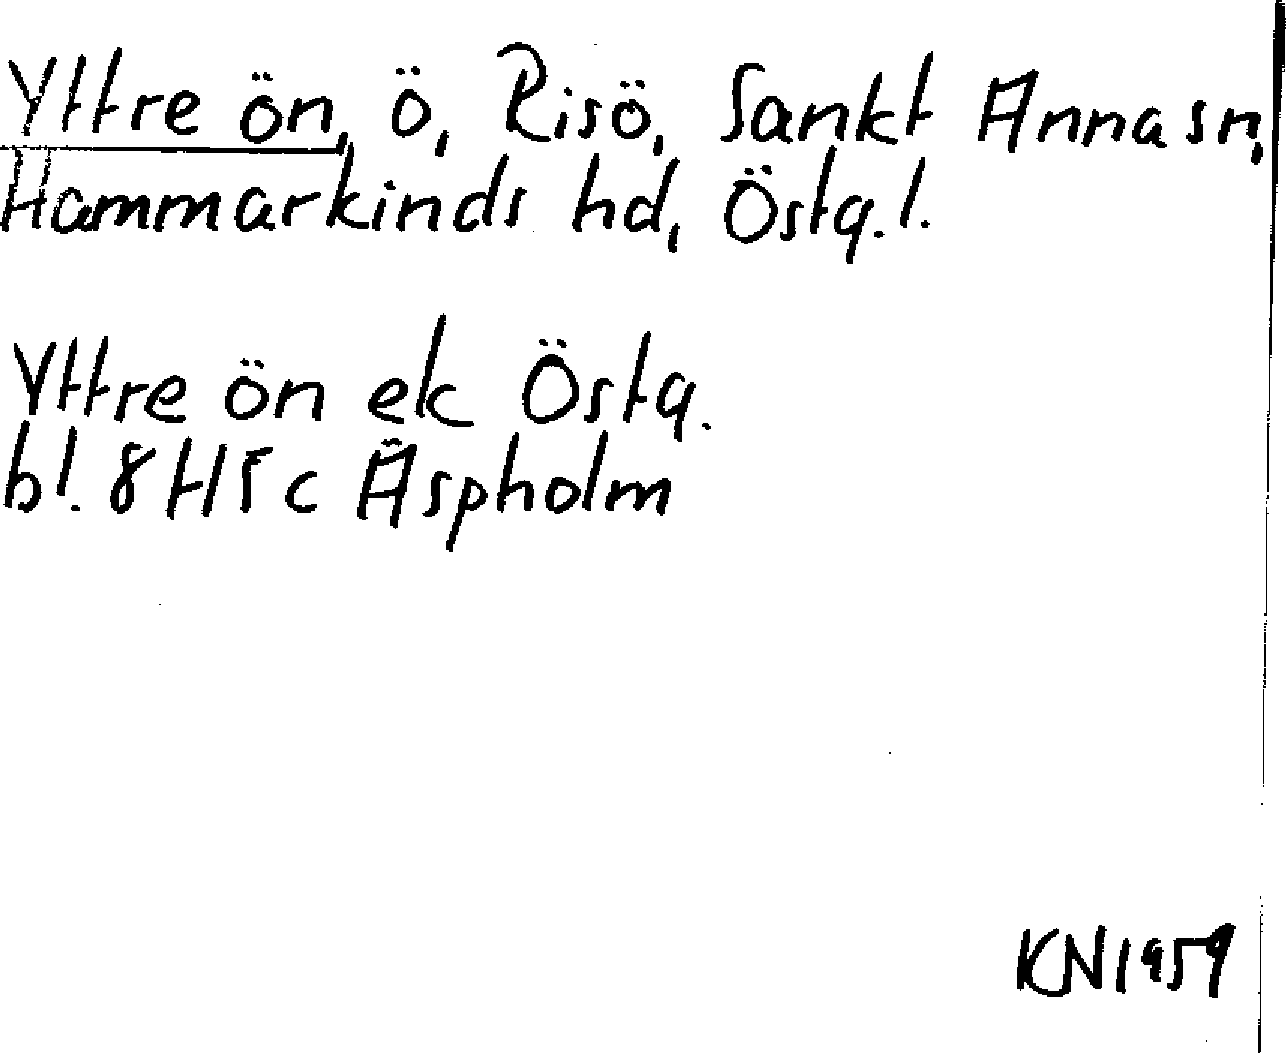 Yttre ön, ö, Risö, Sankt Anna sn,
Hammarkinds hd, Östg. l.
Yttre ön ek Östg.
bl. 8H5c Äspholm
KN1959